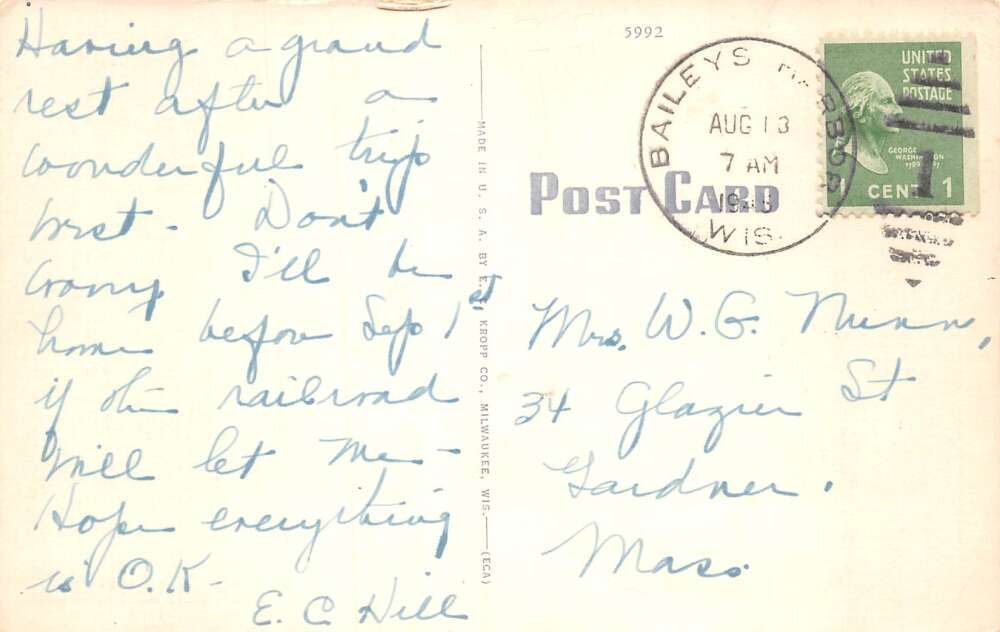 Having a grand
rest after a
wonderful trip
West - Don't
worry I'll be
home before Sep 1st,
if the railroad
will let me -
Hope everything
is O.K -
E. C. Hill
MADE IN U. S. A. BY E. C. KROPP CO., MILWAUKEE, WIS.—(ECA)
5992
BAILEYS HARBOR
AUG 13
7 AM
WIS.
UNITED
STATES
POSTAGE
GEORGE
WASHINGTON
1 CENT 1
1
POST CARD
Mrs. W. G. Nunn,
34 Glazier St
Gardner.
Mass.